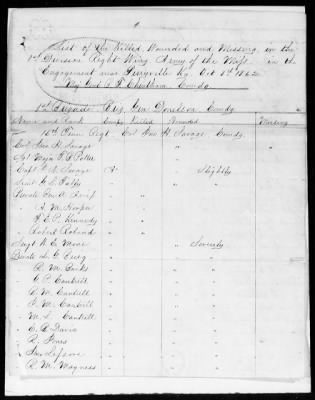 List of the Killed, Wounded and Missing, in the
1st Division Right Wing Army of the Miss. in the
Engagement near Perryville Ky. Oct 8th 1862
Maj Genl B F Cheatham Comdg
1st Brigade Brig. Gen Donelson Comdg.
Name and Rank Comp Killed Wounded Missing
16th Tenn Regt. Col Jno H. Savage Comdg.
Col Jno H. Savage "
Sgt Major T. B. Potter "
Capt J. H. Savage A " Slightly
Lieut "
Private " "
A. M. Hooper " "
J. E. P. Kennedy " "
Robert Roland " "
Sergt H. E. Moore " " Severely
Private L. G. " "
R. M. " "
C. P. Cantrell " "
B. M. Cantrell " "
J. M. Cantrell " "
M. L. Cantrell " "
C. C. Davis " "
R. Jones " "
Jno Lefevre " "
R. M. Magness " "